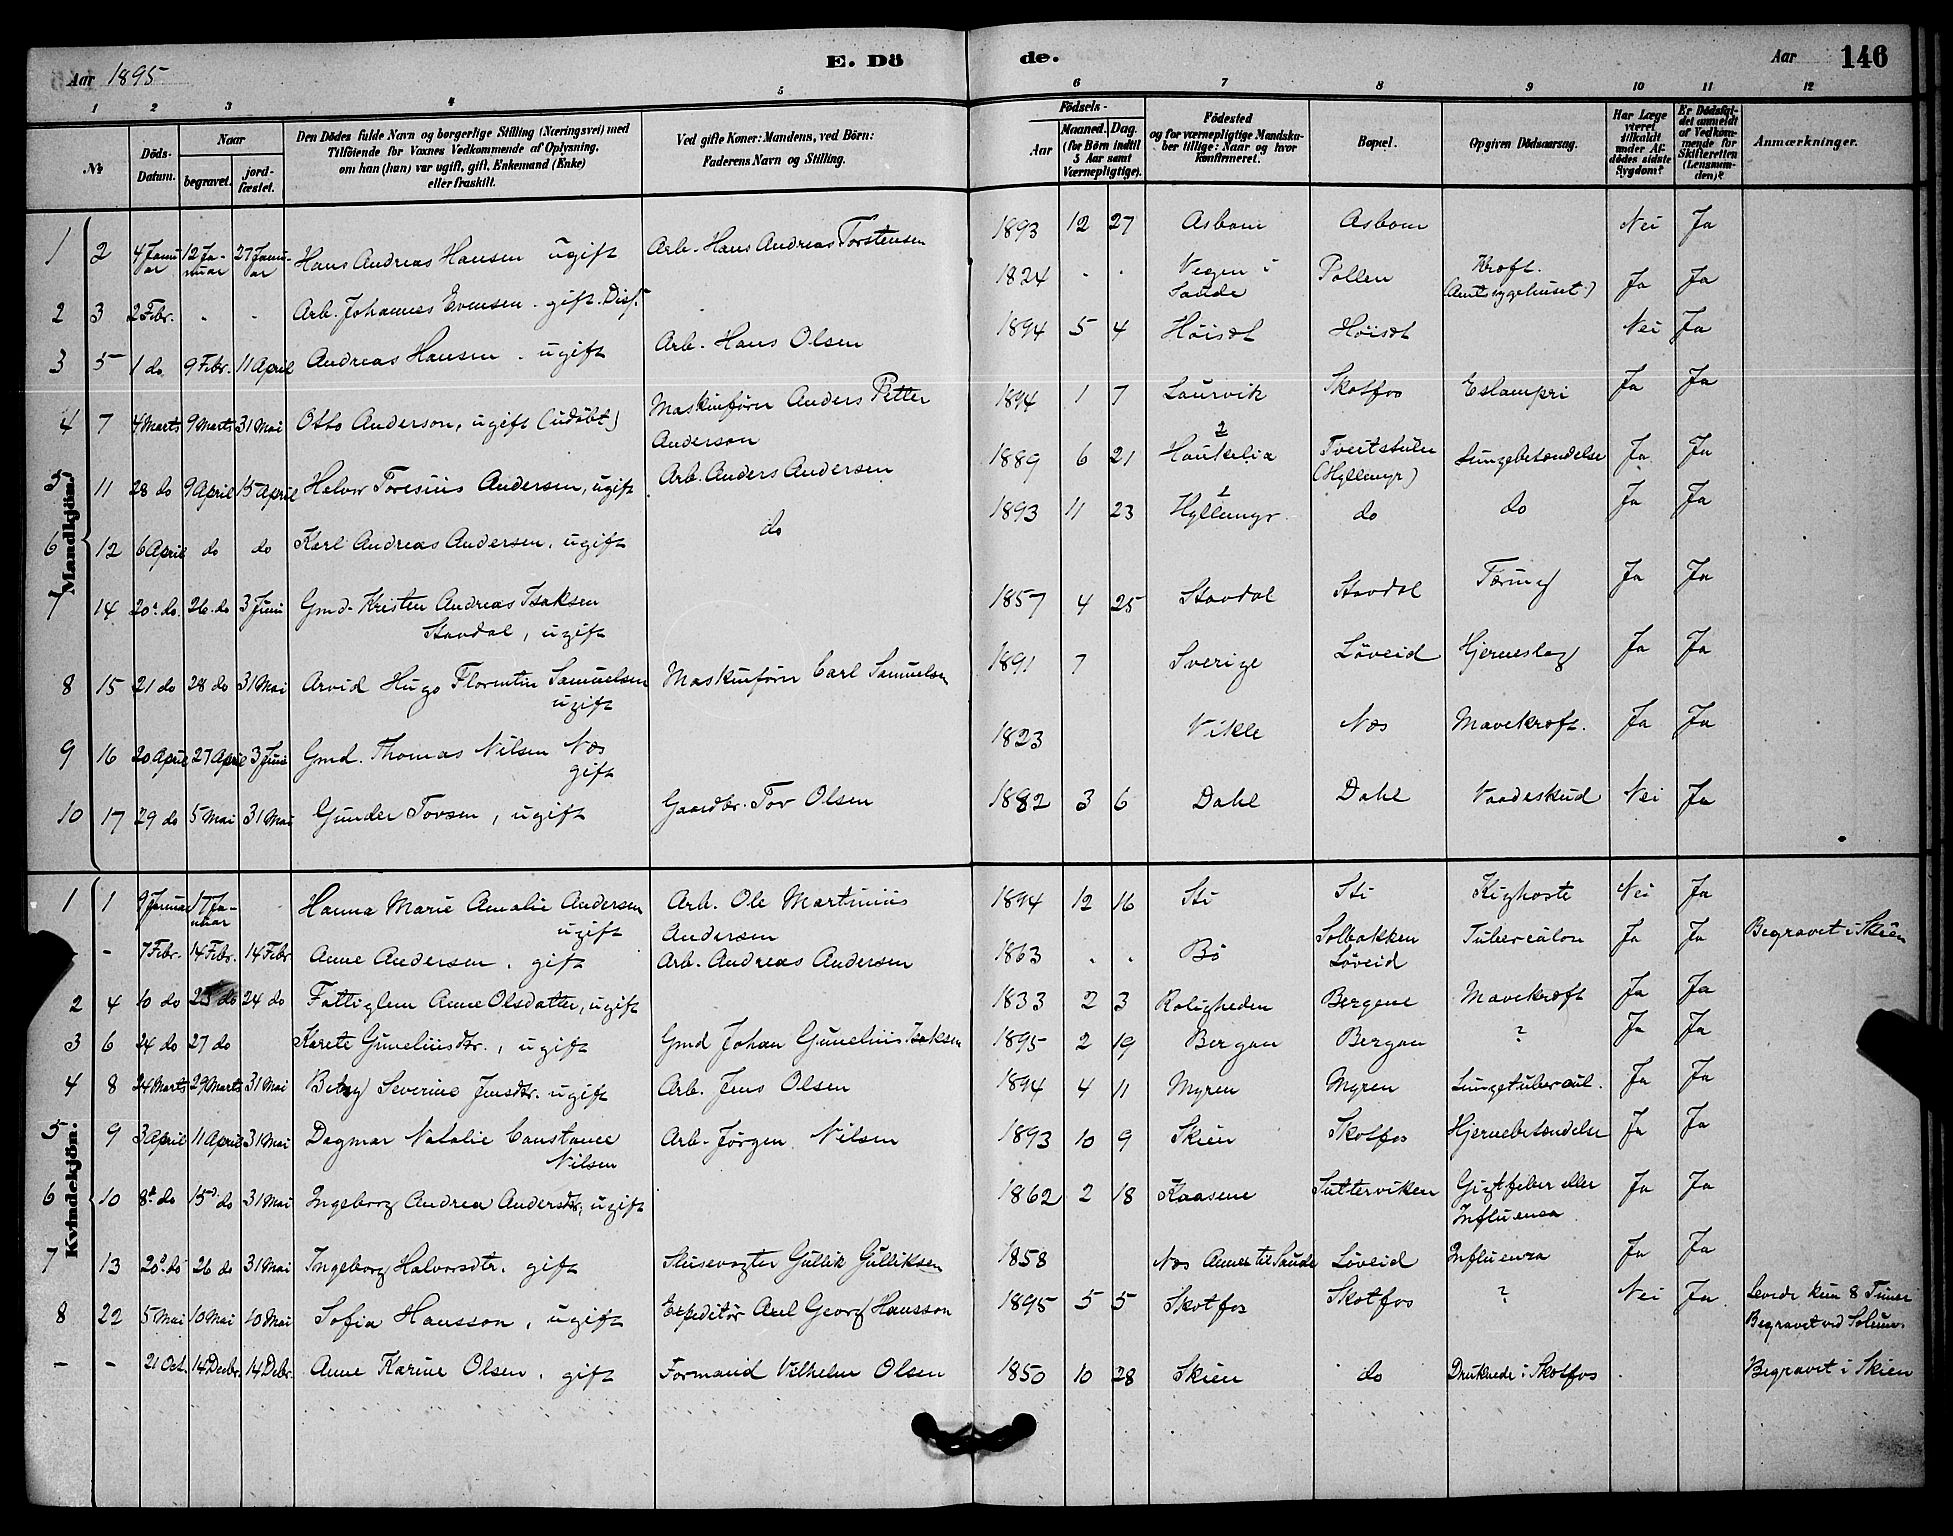 Aar 1895
E. Dö
de.
Aar
146
1 2 3 4 5 6 7 8 9 10 11 12
№
Döds-Datum.
Naar
begravet.
jord-fæstet.
Den Dödes fulde Navn og borgerlige Stilling (Næringsvei) med
Tilföiende for Voxnes Vedkommende af Oplysning,
om han (hun) var ugift, gift, Enkemand (Enke)
eller fraskilt.
Ved gifte Koner: Mandens, ved Börn:
Faderens Navn og Stilling.
Födsels-
Aar
Maaned. Dag.
(for Börn indtil
5 Aar samt
Værnepligtige).
Födested
og for værnepligtige Mandska-
ber tillige: Naar og hvor
konfirmeret.
Bopæl.
Opgiven Dödsaarsag.
Har Læge
været
tilkaldt
under Af-
dødes sidste
Sygdom?
Er Dödsfal-
det anmeldt
af Vedkom-
mende for
Skifteretten
(Lensman-
den)?
Anmærkninger.
Mandkjön.
1 2 4 Januar 12 Januar 27 Januar Hans Andreas Hansen ugift Arb. Hans Andreas Torstensen 1893 12 27 Asbom Asbom Nei Ja
2 3 2 Febr. - - Arb. Johannes Evensen. gift. Diss. 1824 - - Vegen i Saude Pollen Kræft. (Amtssygehuset.) Ja Ja
3 5 1 do 9 Febr. 11 April Andreas Hansen. ugift Arb. Hans Olsen 1894 5 4 Høisæt Høisæt Nei Ja
4 7 4 Marts 9 Marts 31 Mai Otto Anderson, ugift (udöbt) Maskinfører Anders Petter Anderson 1894 1 7 Laurvik Skotfos Eslampsi Ja Ja
5 11 28 do 9 April 15 April Halvor Toresius Andersen, ugift Arb. Anders Andersen 1889 6 21 2 Haukelia Tveitstulen (Hyllemyr) Lungebetændelse Ja Ja
6 12 6 April do do Karl Andreas Andersen. ugift do 1893 11 23 1 Hyllemyr. do do Ja Ja
7 14 20. do. 26. do 3 Juni Gmd. Kristen Andreas Isaksen
Stavdal, ugift 1857 4 25 Stavdal Stavdal Tæring Ja Ja
8 15 21 do 28 do 31 Mai Arvid Hugo Florentin Samuelsen
ugift Maskinfører Carl Samuelsen 1891 7 Sverige Løveid Hjerneslag Ja Ja
9 16 20 April 27 April 3 Juni Gmd. Thomas Nilsen Næs
gift 1823 Vikle Næs Mavekræft. Ja Ja
10 17 29 do 5 Mai 31 Mai Gunder Torsen, ugift Gaardbr. Tor Olsen 1882 3 6 Dahl Dahl Vaadeskud Nei Ja
Kvindekjön.
1 1 9 Januar 17 Januar Hanna Marie Amalie Andersen
ugift Arb. Ole Martinius Andersen 1894 12 16 Sti Sti Kighoste Nei Ja
- 7 Febr. 14 Febr. 14 Febr Anne Andersen. gift Arb. Andreas Andersen 1863 - - Bö Solbakken Løveid Tuberculon Ja Ja Begravet i Skien
2 4 10 do 25 do 24 do Fattiglem Anne Olsdatter, ugift 1833 2 3 Roligheden Bergene Mavekræft Ja Ja
3 6 24 do 27 do Karete Gunelius dtr., ugift Gmd Johan Gunelius Isaksen 1895 2 19 Bergan Bergan ? Ja Ja
4 8 24 Marts 29 Marts 31 Mai Betsy Severine Jensdtr. ugift Arb. Jens Olsen 1894 4 11 Myren Myren Lungetubercul. Ja Ja
5 9 3 April 11 April 31 Mai Dagmar Natalie Constance
Nilsen Arb. Jørgen Nilsen 1893 10 9 Skien Skotfos Hjernebetændelse Ja Ja
6 10 8de do 15de do 31 Mai Ingeborg Andrea Andersdtr, ugift 1862 2 18 Kaasene Sutterviken Gigtfeber eller
Influensa Ja Ja
7 13 20de do 26 do 31 Mai Ingeborg Halvorsdtr. gift Slusevogter Gullik Gulliksen 1858 Næs Annex til Saude Løveid Influenza Ja Ja
8 22 5 Mai 10 Mai 10 Mai Sofia Hansson, ugift Expeditör Axel Georg Hansson 1895 5 5 Skotfos Skotfos ? Nei Ja Levede kun 8 Timer
Begravet ved Solum.
- - 21 Oct. 14 Decbr. 14 Debr. Anne Karine Olsen. gift Formand Vilhelm Olsen 1850 10 28 Skien do Druknede i Skotfos Begravet i Skien